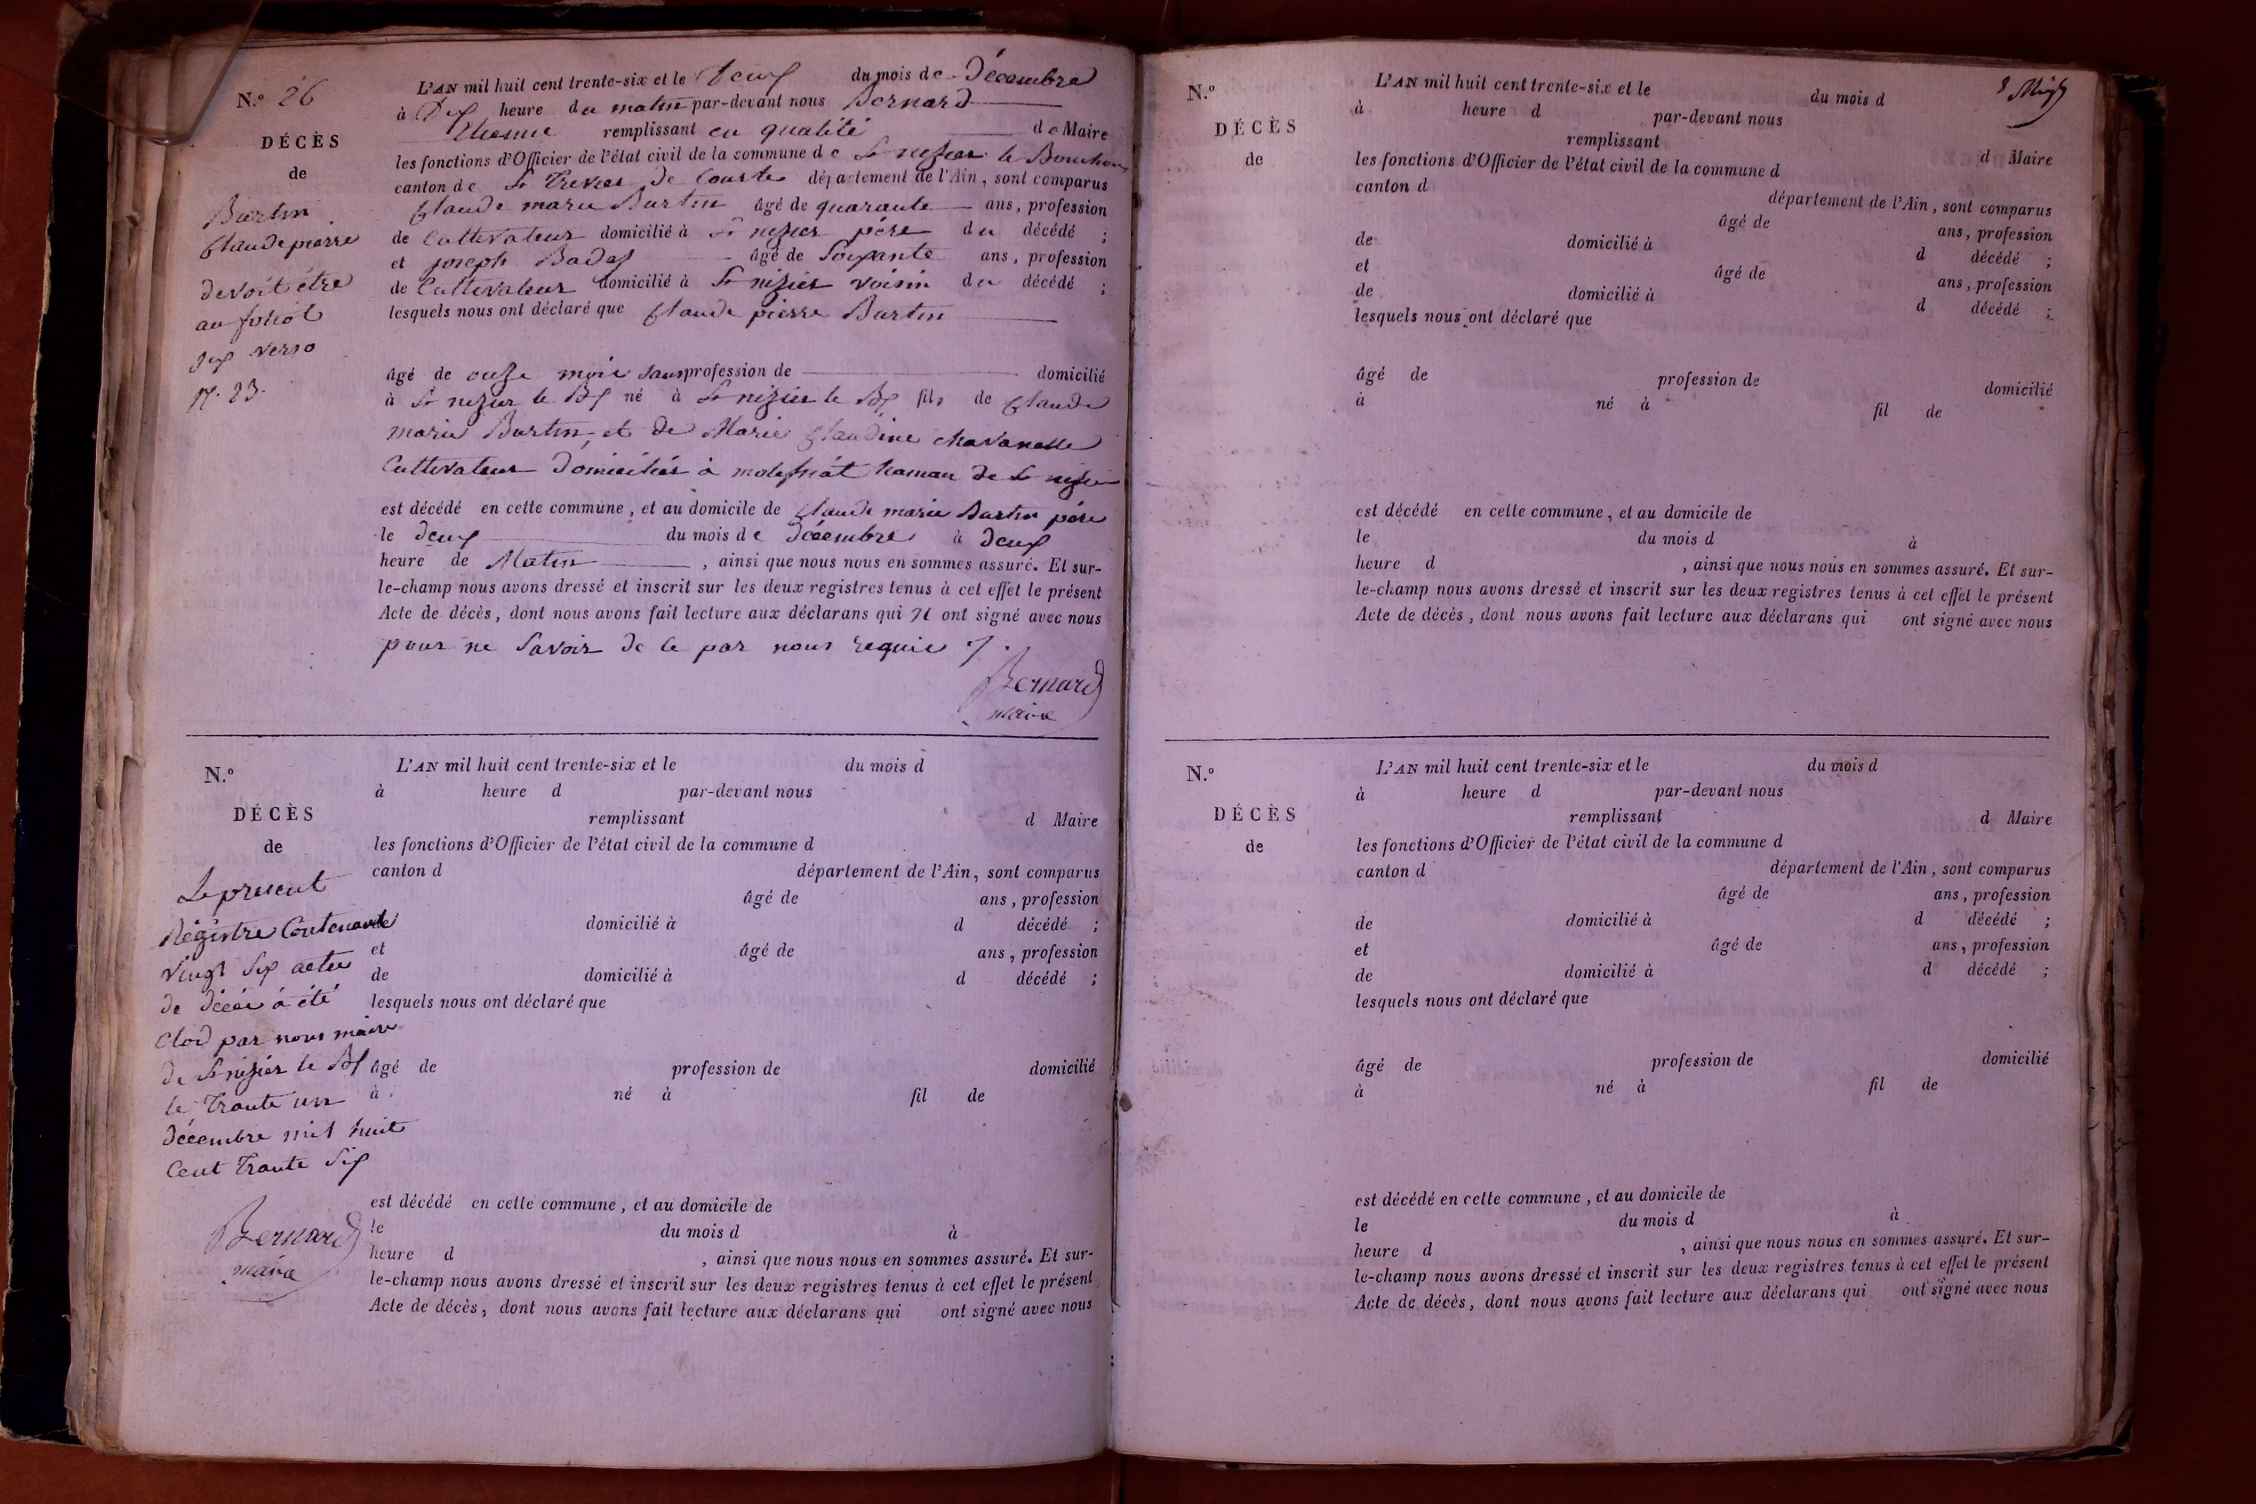 N.° 26
DÉCÈS
de
Burtin
Claude pierre
devoit être
au foliot
six verso
N. 23.
L'AN mil huit cent trente-six et le deux du mois de Décembre
à Dix heure du matin par-devant nous Bernard
remplissant en qualité de Maire
les fonctions d'Officier de l'état civil de la commune de St nizier le Bouchoux
canton de St Trivier de Courtes département de l'Ain, sont comparus
Claude marie Burtin âgé de quarante ans, profession
de Cultivateur domicilié à St nizier père du décédé ;
et joseph Badez âgé de Soixante ans, profession
de Cultivateur domicilié à St nizier voisin du décédé ;
lesquels nous ont déclaré que Claude pierre Burtin
âgé de onze mois sans profession de domicilié
à St nizier le Bx né à St nizier le Bx fils de Claude
marie Burtin, et de Marie Claudine chavanelle
Cultivateur domiciliés à hamau de St nizier
est décédé en cette commune, et au domicile de Claude marie Burtin père
le deux du mois de Décembre à deux
heure de Matin , ainsi que nous nous en sommes assuré. Et sur-
le-champ nous avons dressé et inscrit sur les deux registres tenus à cet effet le présent
Acte de décès, dont nous avons fait lecture aux déclarans qui N ont signé avec nous
pour ne Savoir de ce par nous requis
Bernard
maire
N.°
DÉCÈS
de
Le present
Régistre Contenant
vingt Six actes
de décès à été
Clod par nous maire
de St nizier le Bx
le Trante un
décembre mil huit
Cent Trante Six
Bernard
maire
L'AN mil huit cent trente-six et le du mois d
à heure d par-devant nous
remplissant d Maire
les fonctions d'Officier de l'état civil de la commune d
canton d département de l'Ain, sont comparus
âgé de ans, profession
domicilié à d décédé ;
et âgé de ans, profession
de domicilié à d décédé ;
lesquels nous ont déclaré que
âgé de profession de domicilié
à né à fil de
est décédé en cette commune, et au domicile de
le du mois d à
heure d , ainsi que nous nous en sommes assuré. Et sur-
le-champ nous avons dressé et inscrit sur les deux registres tenus à cet effet le présent
Acte de décès, dont nous avons fait lecture aux déclarans qui ont signé avec nous
N.°
DÉCÈS
de
L'AN mil huit cent trente-six et le du mois d
à heure d par-devant nous
remplissant d Maire
les fonctions d'Officier de l'état civil de la commune d
canton d département de l'Ain, sont comparus
âgé de ans, profession
de domicilié à d décédé ;
et âgé de ans, profession
de domicilié à d décédé ;
lesquels nous ont déclaré que
âgé de profession de domicilié
à né à fil de
est décédé en cette commune, et au domicile de
le du mois d à
heure d , ainsi que nous nous en sommes assuré. Et sur-
le-champ nous avons dressé et inscrit sur les deux registres tenus à cet effet le présent
Acte de décès, dont nous avons fait lecture aux déclarans qui ont signé avec nous
N.°
DÉCÈS
de
L'AN mil huit cent trente-six et le du mois d
à heure d par-devant nous
remplissant d Maire
les fonctions d'Officier de l'état civil de la commune d
canton d département de l'Ain, sont comparus
âgé de ans, profession
de domicilié à d décédé ;
et âgé de ans, profession
de domicilié à d décédé ;
lesquels nous ont déclaré que
âgé de profession de domicilié
à né à fil de
est décédé en cette commune, et au domicile de
le du mois d à
heure d , ainsi que nous nous en sommes assuré. Et sur-
le-champ nous avons dressé et inscrit sur les deux registres tenus à cet effet le présent
Acte de décès, dont nous avons fait lecture aux déclarans qui ont signé avec nous